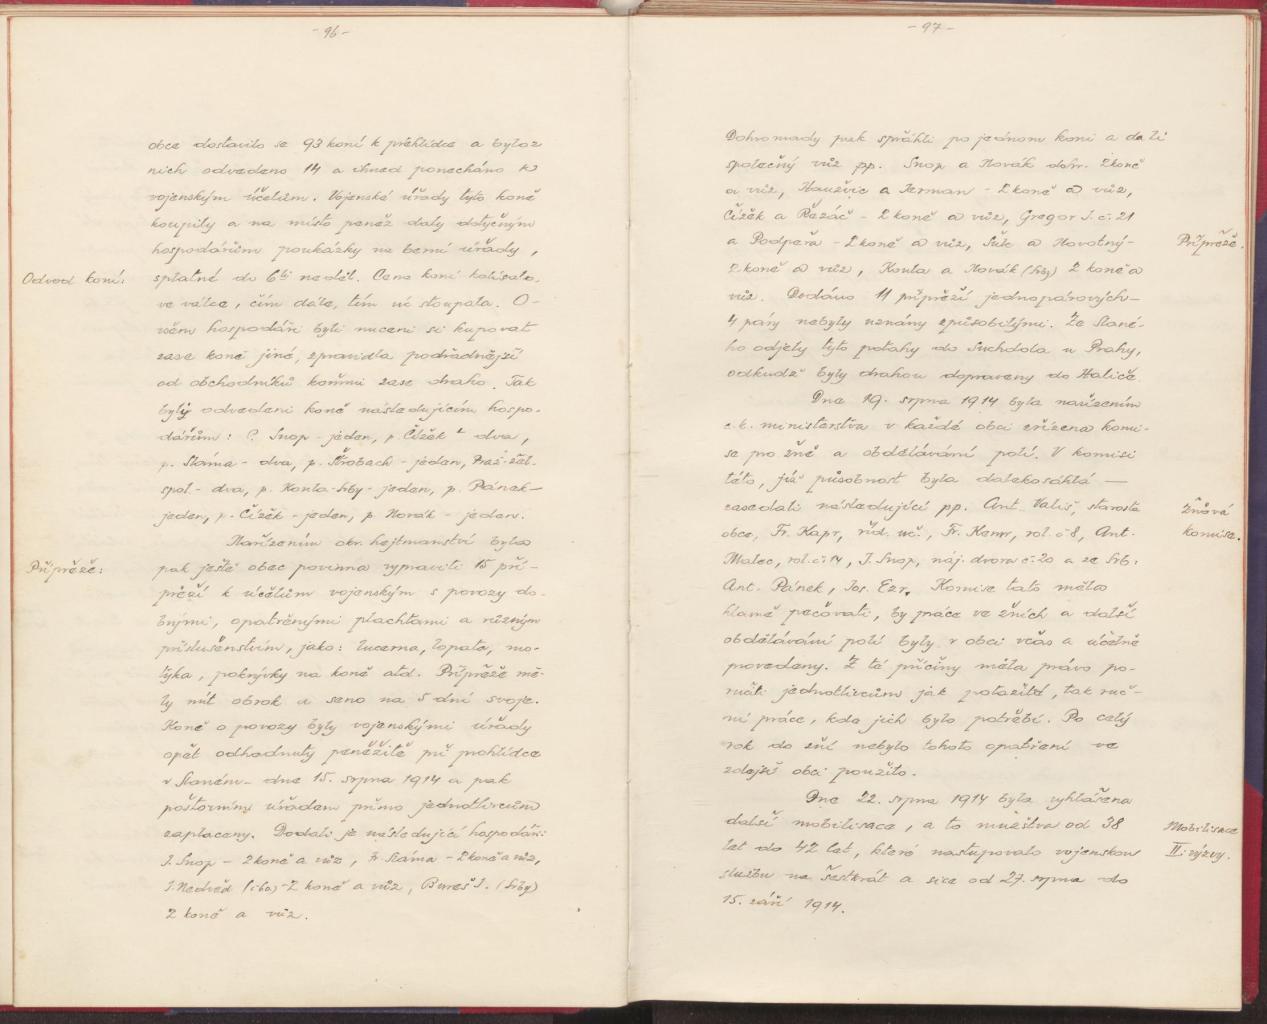 - 96 -
obce dostavilo se 93 koní k přehlídce a bylo z
nich odvedeno 14 a ihned ponecháno k
vojenským účelům. Vojenské úřady tyto koně
koupily a na místo peněz daly dotyčným
hospodářům poukázky na berní úřady,
Odvod koní:
splatné do 6ti neděl. Cena koní kolísala,
ve válce, čím dále, tím víc stoupala. O-
všem hospodáři byli nuceni si kupovat
zase koně jiné, zpravidla podřadnější
od obchodníků koňmi zase draho. Tak
byly odvedeni koně následujícím hospo-
dářům: P. Snop - jeden, p. Čížek dva,
p. Sláma - dva, p. Štrobach - jeden, Praž. žel.
spol. - dva, p. Konta - Srby - jeden, p. Pánek -
jeden, p. Čížek - jeden, p. Novák - jeden.
Nařízením okr. hejtmanství byla
Přípřeže:
pak ještě obec povinna vypraviti 15 pří-
přeží k účelům vojenským s povozy do-
brými, opatřenými plachtami a různým
příslušenstvím, jako: lucerna, lopata, mo-
tyka, pokrývky na koně atd. Přípřeže mě-
ly mít obrok a seno na 5 dní svoje.
Koně a povozy byly vojenskými úřady
opět odhadnuty peněžitě při prohlídce
v Slaném - dne 15. srpna 1914 a pak
poštovním úřadem přímo jednotlivcům
zaplaceny. Dodali je následující hospodáři:
J. Snop - 2 koně a vůz, Fr. Sláma - 2 koně a vůz,
J. Nedvěd - 2 koně a vůz, Bureš J. (Srby)
2 koně a vůz.
- 97 -
Dohromady pak spřáhli po jednom koni a dali
společný vůz pp. Snop a Novák dohr. 2 koně
a vůz, Hauzvic a Jerman - 2 koně a vůz,
Čížek a Řezáč - 2 koně a vůz, Gregor J. č. 21
Přípřeže.
a Podpěra - 2 koně a vůz, Šůk a Novotný -
2 koně a vůz, Konta a Novák (Srby) 2 koně a
vůz. Dodáno 11 přípřeží jednopárových -
4 páry nebyly uznány způsobilými. Ze Slané-
ho odjely tyto potahy do Suchdola u Prahy,
odkudž byly drahou dopraveny do Haliče.
Dne 19. srpna 1914 byla nařízením
c. k. ministerstva v každé obci zřízena komi-
se pro žně a obdělávání polí. V komisi
této, jíž působnost byla dalekosáhlá -
Žňová
zasedali následující pp. Ant. Vališ, starosta
komise.
obce, Fr. Kapr, říd. uč., Fr. Kemr, rol. č 8, Ant.
Malec, rol. č. 14, J. Snop, náj. dvora č. 20 a ze Srb:
Ant. Pánek, Jos. Ezr. Komise tato měla
hlavně pečovati, by práce ve žních a další
obdělávání polí byly v obci včas a účelně
provedeny. Z té příčiny měla právo po-
ručiti jednotlivcům jak potažité, tak ruč-
ní práce, kde jich bylo potřebí. Po celý
rok do žní nebylo tohoto opatření ve
zdejší obci použito.
Dne 22. srpna 1914 byla vyhlášena
další mobilisace, a to mužstva od 38
Mobilisace
let do 42 let, které nastupovalo vojenskou
II. výzvy.
službu na šestkrát a sice od 27. srpna do
15. září 1914.